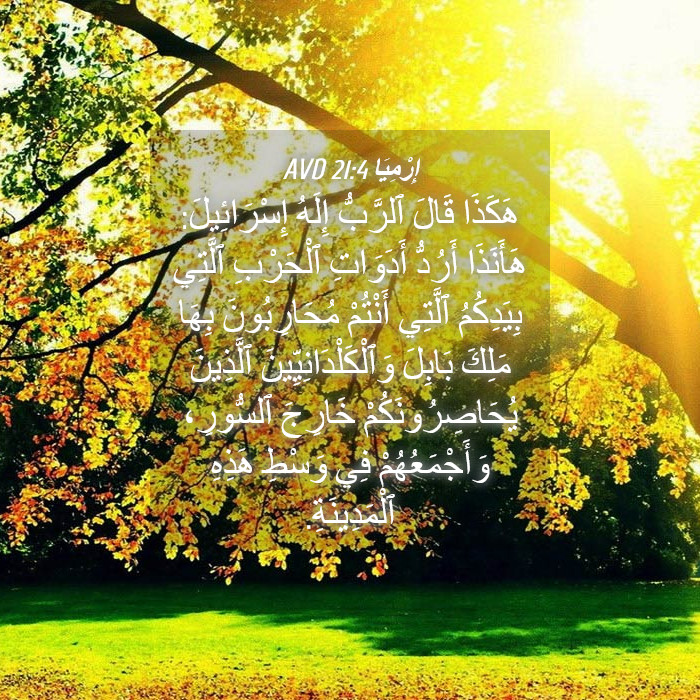 إِرْمِيَا 21:4 AVD
هَكَذَا قَالَ ٱلرَّبُّ إِلَهُ إِسْرَائِيلَ:
هَأَنَذَا أَرُدُّ أَدَوَاتِ ٱلْحَرْبِ ٱلَّتِي
بِيَدِكُمُ ٱلَّتِي أَنْتُمْ مُحَارِبُونَ بِهَا
مَلِكَ بَابِلَ وَٱلْكَلْدَانِيِّينَ ٱلَّذِينَ
يُحَاصِرُونَكُمْ خَارِجَ ٱلسُّورِ،
وَأَجْمَعُهُمْ فِي وَسْطِ هَذِهِ
ٱلْمَدِينَةِ.